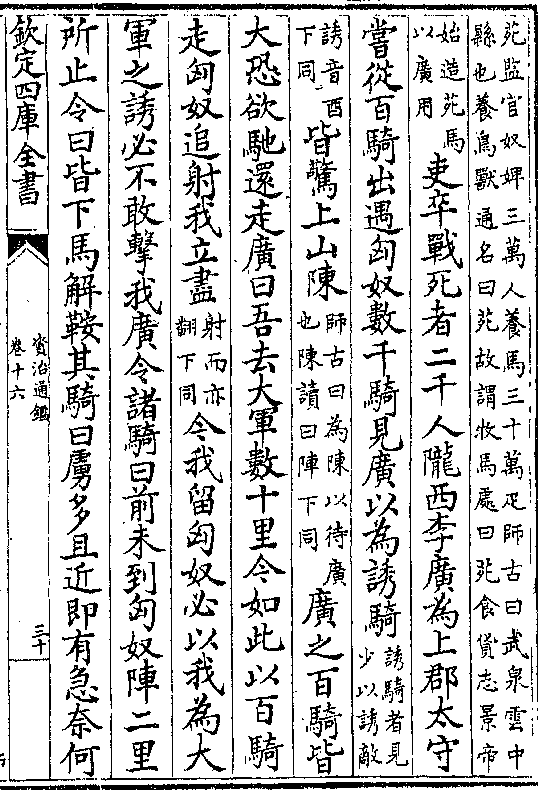 苑監官奴婢三萬人養馬三十萬疋師古曰武泉雲中
縣也養鳥獸通名曰苑故謂牧馬處曰苑食貨志景帝
始造苑馬
以廣用
吏卒戰死者二千人隴西李廣為上郡太守
嘗從百騎出遇匈奴數千騎見廣以為誘騎
誘騎者見
少以誘敵
誘音酉
下同
皆驚上山陳
師古曰為陳以待廣
也陳讀曰陣下同
廣之百騎皆
大恐欲馳還走廣曰吾去大軍數十里今如此以百騎
走匈奴追射我立盡
射而亦
翻下同
今我留匈奴必以我為大
軍之誘必不敢擊我廣令諸騎曰前未到匈奴陣二里
所止令曰皆下馬解鞍其騎曰虜多且近即有急奈何
欽定四庫全書
資治通鑑
卷十六
三十